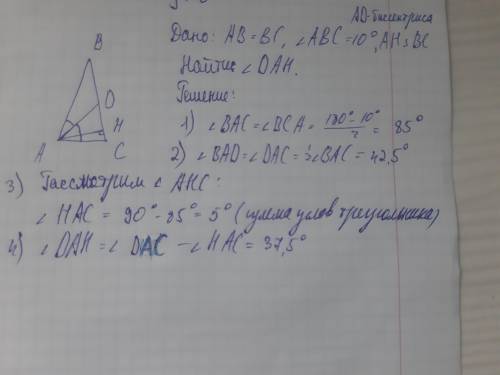 AD-биссектриса
Дано: AB = BC, ∠ABC = 10°, AH ⊥ BC
Найти ∠DAH.
Решение:
1) ∠BAC = ∠BCA = (180° - 10°)/2 = 85°
2) ∠BAD = ∠DAC = ½∠BAC = 42,5°
3) Рассмотрим ∠ AHC:
∠HAC = 90° - 85° = 5° (сумма углов треугольника)
4) ∠DAH = ∠DAC - ∠HAC = 37,5°
B
D
H
A
C